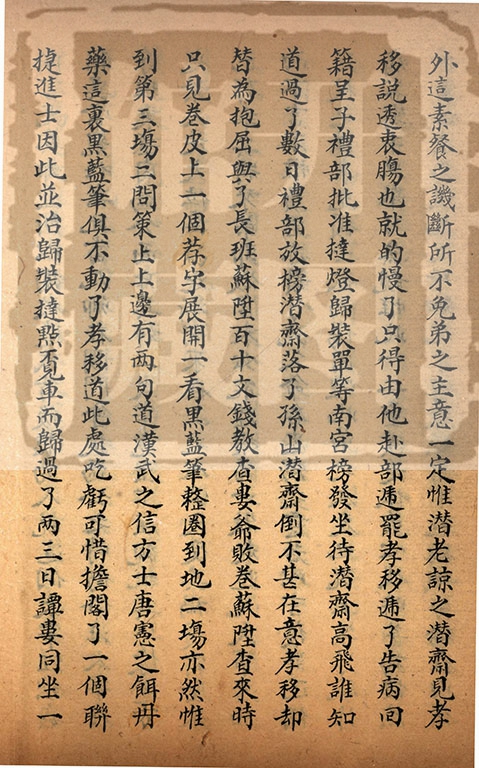 外這素餐之譏斷所不免弟之主意一定惟潛老諒之潛齋見孝
移說透衷腸也就的慢了只得由他赴部遞罷孝移遞了告病回
籍呈子禮部批准撻燈歸裝單等南宮榜發坐待潛齋高飛誰知
道過了數日禮部放榜潜齋落了孫山潜齋倒不甚在意孝移却
替為抱屈與了長班蘇陞百十文錢教查婁爺敗卷蘇陞查來時
只見卷皮上一個荐字展開一看黑藍筆整圈到地二塲亦然惟
到第三塲三問策上上邊有两句道漢武之信方士唐憲之餌丹
藥這裏黑藍筆俱不動了孝移道此處吃虧可惜擔閣了一個聯
捷進士因此並治歸裝撻㸃覓車而歸過了两三日譚婁同坐一